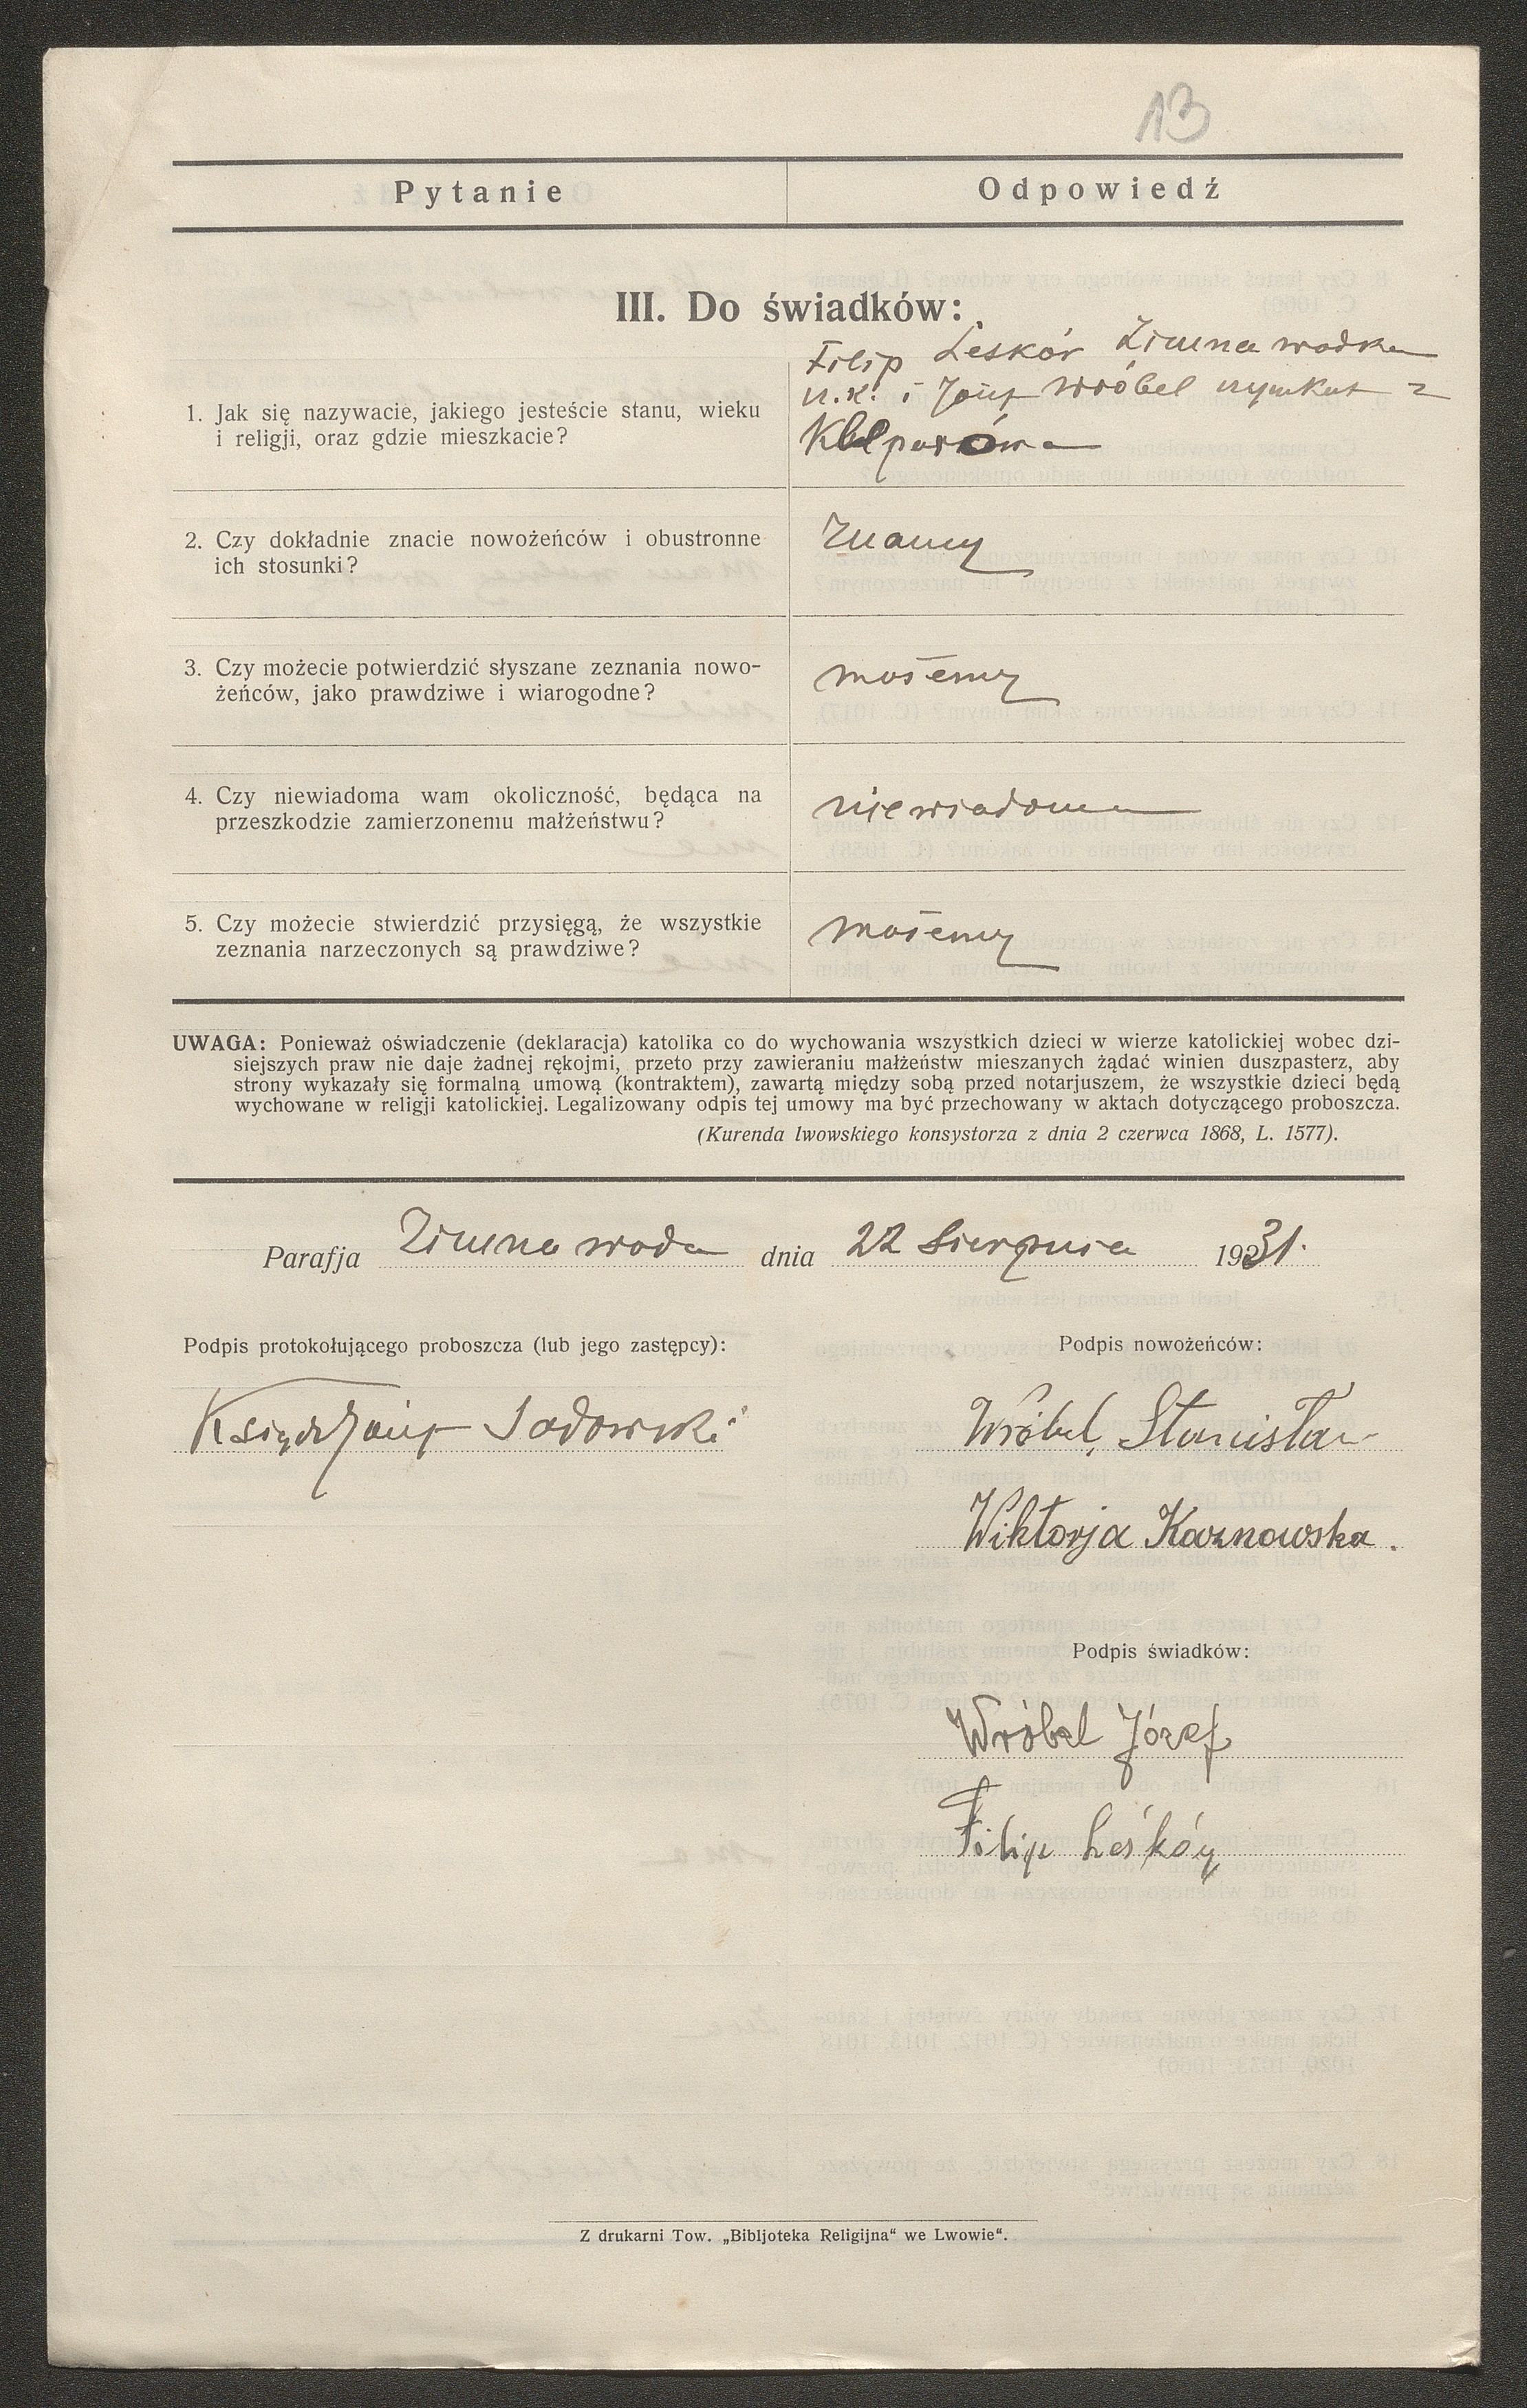 13
Pytanie
Odpowiedź
III. Do świadków:
1. Jak się nazywacie, jakiego jesteście stanu, wieku
i religji, oraz gdzie mieszkacie?
Filip Leskór Zimna wodka
i Józef Wróbel z
2. Czy dokładnie znacie nowożeńców i obustronne
ich stosunki?
Znamy
3. Czy możecie potwierdzić słyszane zeznania nowo-
żeńców, jako prawdziwe i wiarogodne?
możemy
4. Czy niewiadoma wam okoliczność, będąca na
przeszkodzie zamierzonemu małżeństwu?
niewiadoma
5. Czy możecie stwierdzić przysięgą, że wszystkie
zeznania narzeczonych są prawdziwe?
możemy
UWAGA: Ponieważ oświadczenie (deklaracja) katolika co do wychowania wszystkich dzieci w wierze katolickiej wobec dzi-
siejszych praw nie daje żadnej rękojmi, przeto przy zawieraniu małżeństw mieszanych żądać winien duszpasterz, aby
strony wykazały się formalną umową (kontraktem), zawartą między sobą przed notarjuszem, że wszystkie dzieci będą
wychowane w religji katolickiej. Legalizowany odpis tej umowy ma być przechowany w aktach dotyczącego proboszcza.
(Kurenda lwowskiego konsystorza z dnia 2 czerwca 1868, L. 1577).
Parafja Zimna woda dnia 22 Sierpnia 1931.
Podpis protokołującego proboszcza (lub jego zastępcy):
Podpis nowożeńców:
Ksiądz Józef Sadowski
Wróbel, Stanisław
Wiktorja Kaznowska.
Podpis świadków:
Wróbel Józef
Filip
Z drukarni Tow. „Bibljoteka Religijna“ we Lwowie“.